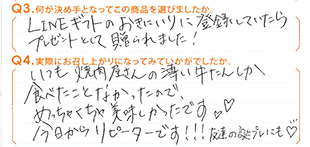 Q3.何が決め手となってこの商品を選びましたか。
LINEギフトのおきにいりに登録していたら
プレゼントとして贈られました!
Q4.実際にお召し上がりになってみていかがでしたか。
いつも焼肉屋さんの薄い牛たんしか
食べたことなかったので、
めっちゃくちゃ美味しかったです♡♡
今日からリピーターです!!!友達の誕プレにも♡♡